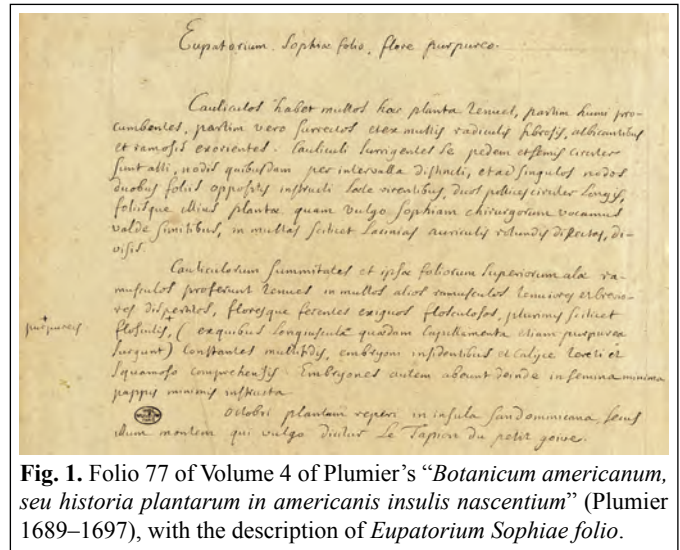 Eupatorium Sophiæ folio, flore purpureo.
Cauliculos habet multos hæc planta tenues, partim humi pro-
cumbentes, partim vero surrectos et ex multis radiculis fibrosis, albicantibus
et ramosis exorientes. Cauliculi surrigentes se pedem et semis circiter
sunt alti, nodis quibusdam per intervalla distincti, et ad singulos nodos
duobus foliis oppositis instructi læte virentibus, duos pollices circiter longis,
foliisque illius plantæ quam vulgo Sophiam chirurgorum vocamus
valde similibus, in multas scilicet lacinias auriculis rotundis di-
visis.
Cauliculorum summitates et ipsæ foliorum superiorum alæ ra-
musculos proferunt tenues in multos alios ramusculos tenuiores et brevio-
res dispertitos, floresque ferentes exiguos flosculosos, plurimis scilicet
purpureis
flosculis, (ex quibus longiuscula quædam capillamenta etiam purpurea
surgunt) constantes multifidis, embryoni insidentibus et calyce tereti et
squamoso comprehensis. Embryones autem abeunt deinde in semina minima
pappis minimis instructa
octobri plantam reperi in insula sandominicana, secus
illum montem qui vulgo dicitur Le Tapion du petit goive.
Fig. 1. Folio 77 of Volume 4 of Plumier’s “Botanicum americanum,
seu historia plantarum in americanis insulis nascentium” (Plumier
1689–1697), with the description of Eupatorium Sophiae folio.